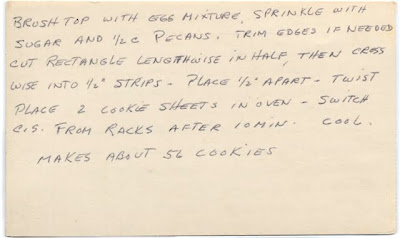 BRUSH TOP WITH EGG MIXTURE, SPRINKLE WITH
SUGAR AND 1/2 C PECANS. TRIM EDGES IF NEEDED
CUT RECTANGLE LENGTHWISE IN HALF, THEN CROSS
WISE INTO 1/2" STRIPS - PLACE 1/2" APART - TWIST
PLACE 2 COOKIE SHEETS IN OVEN - SWITCH
C.S. FROM RACKS AFTER 10 MIN. COOL.
MAKES ABOUT 56 COOKIES